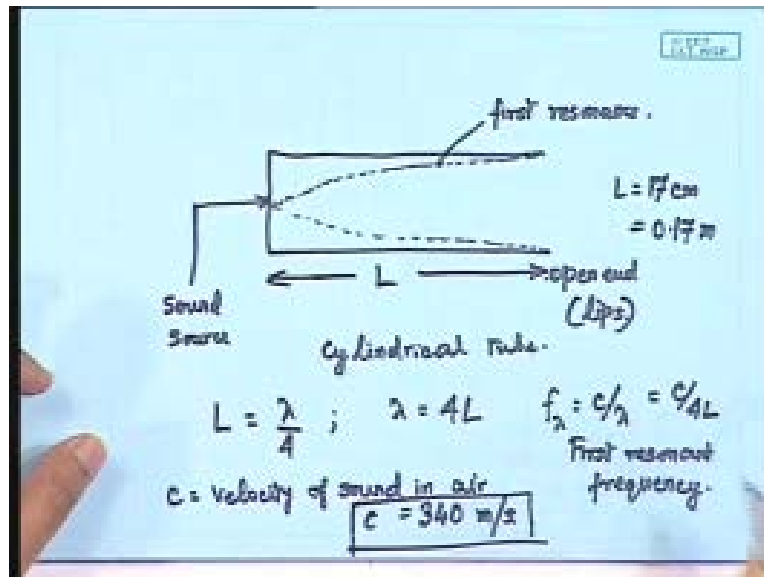 first resonance.
L = 17 cm
= 0.17 m
L
open end
(lips)
Sound
Source
Cylindrical Tube.
L = λ/4 ; λ = 4L f_λ = c/λ = c/4L
First resonant
frequency.
c = velocity of sound in air
c = 340 m/s